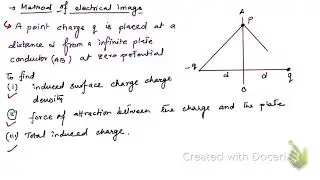 → Method of electrical image
↳ A point charge q is placed at a
distance d from a infinite plate
conductor (AB) at zero potential
To find
(i) induced surface charge charge
density
(ii) force of attraction between the charge and the plate
(iii) Total induced charge.
A
P
-q
d
d
q
B
Created with Doceri